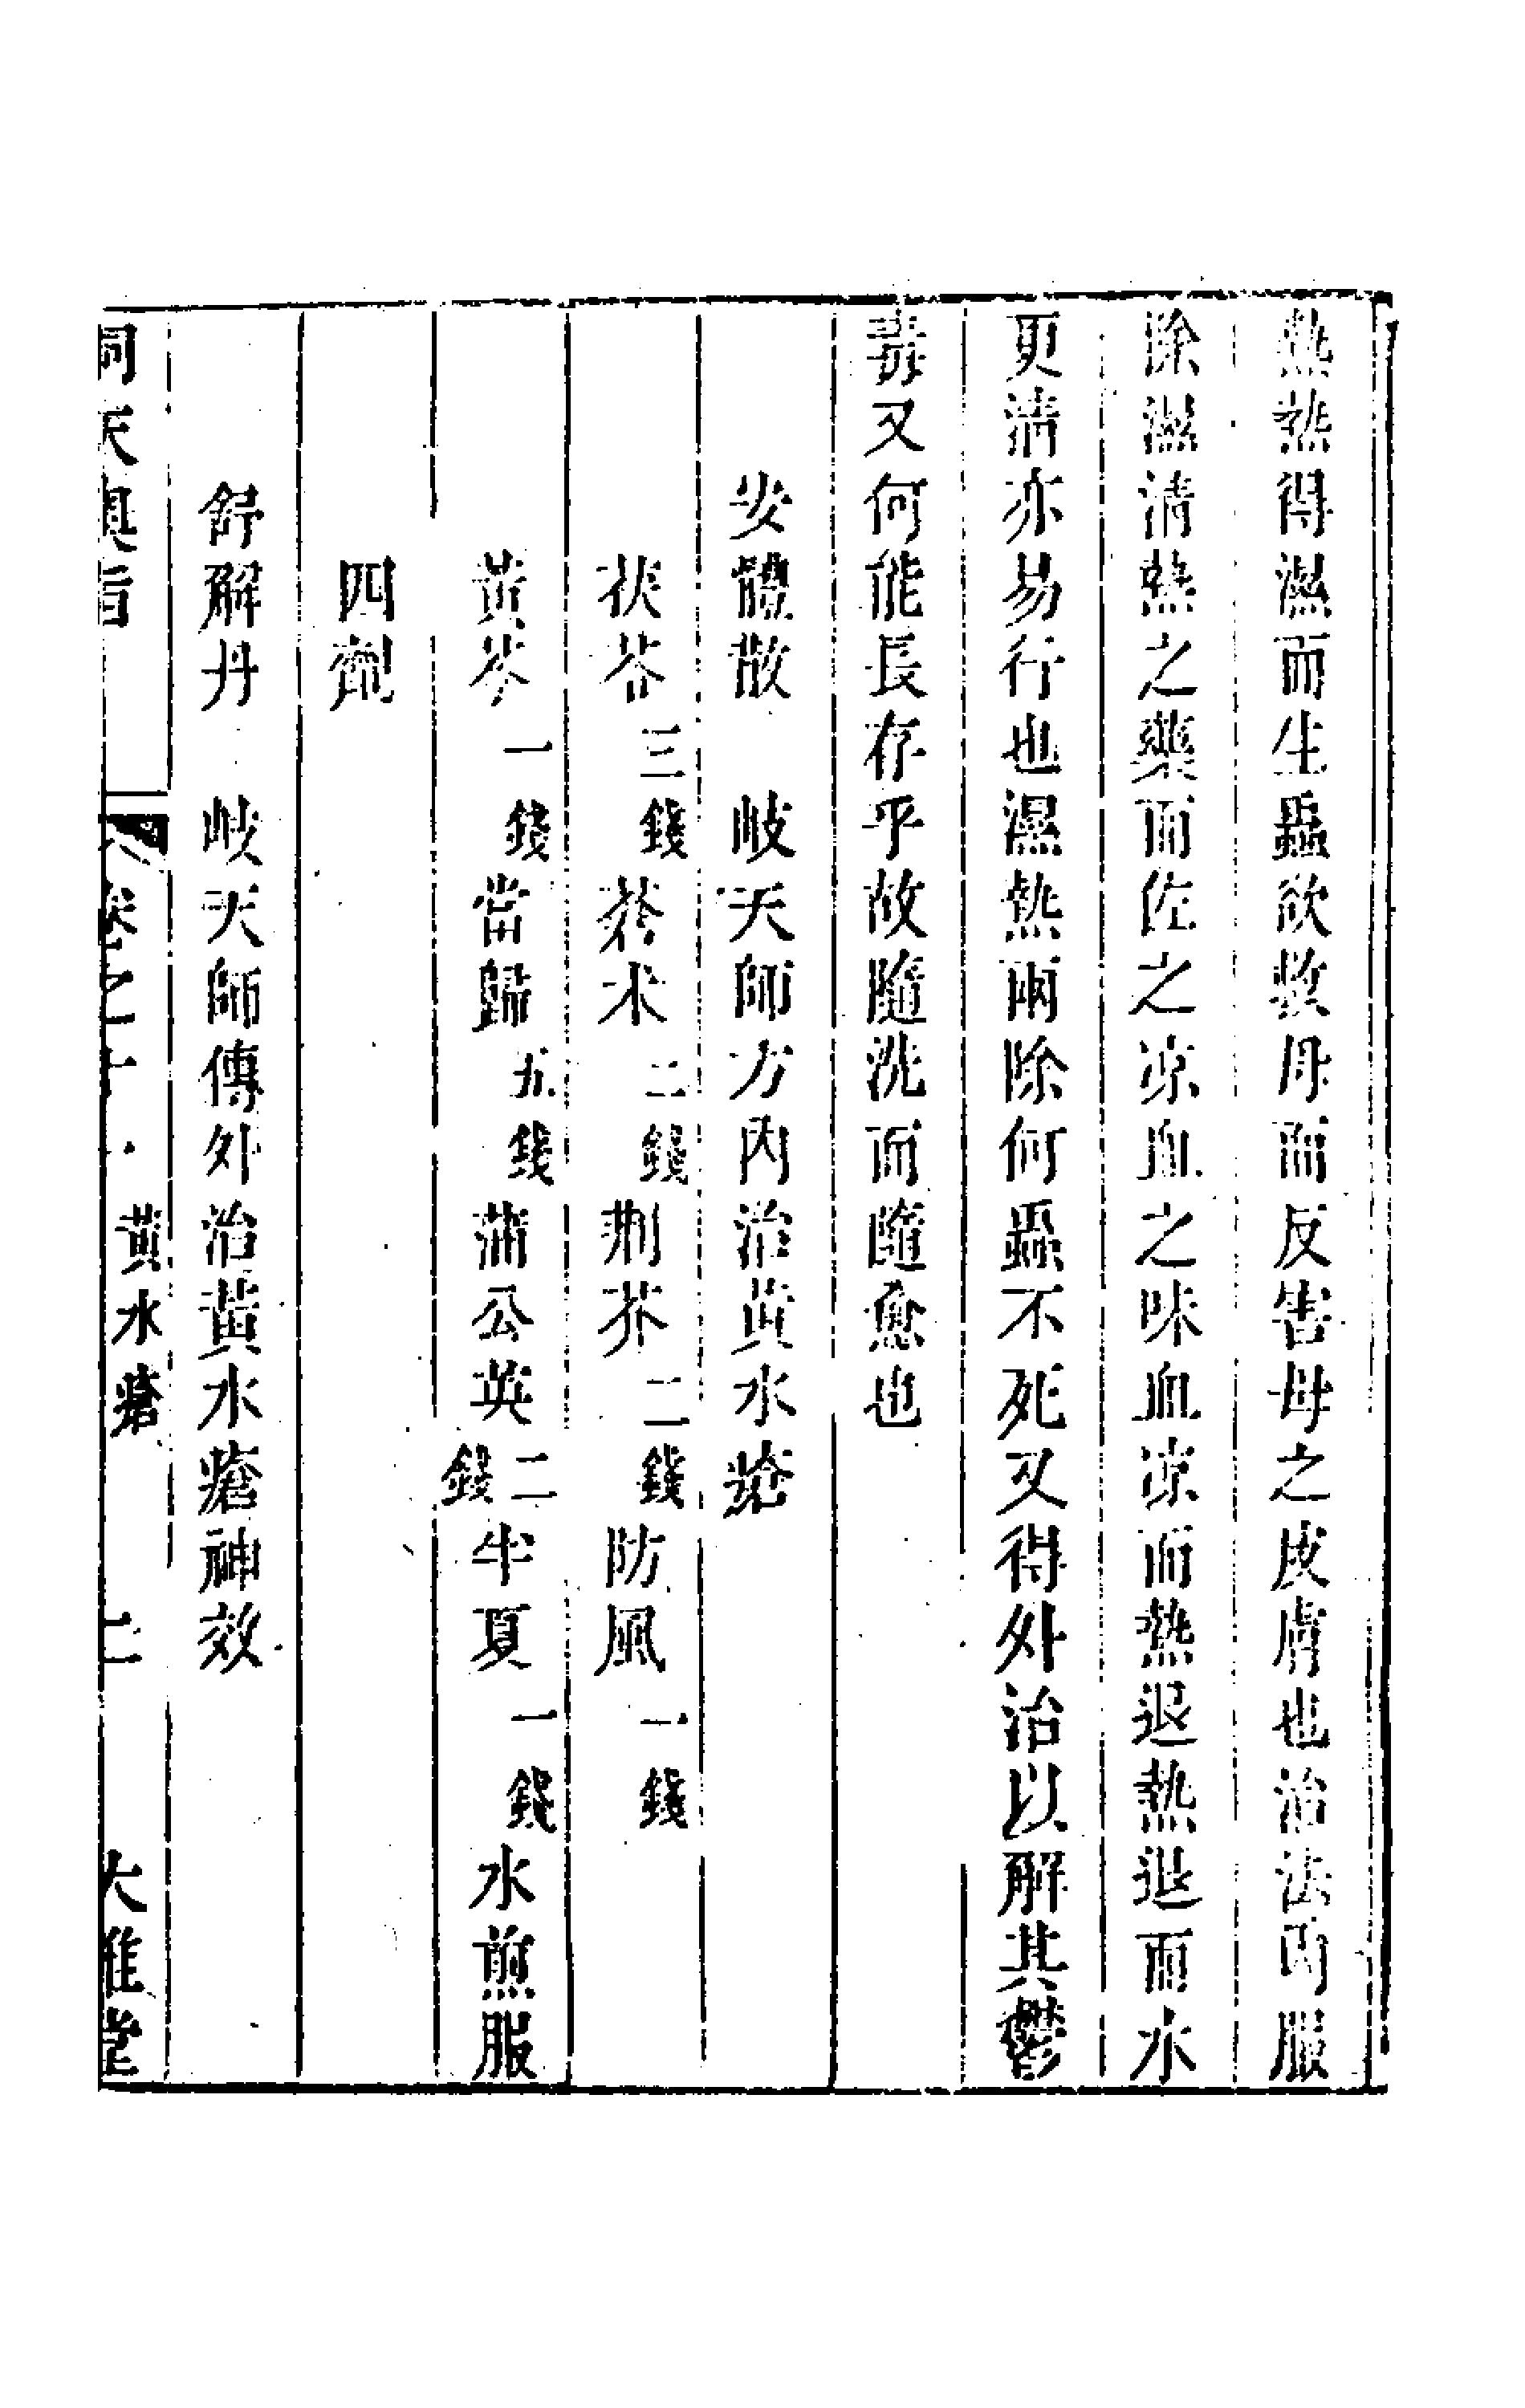 熱熱得濕而生蟲欲救母而反害母之皮膚也治法內服
除濕清熱之藥而佐之凉血之味血凉而熱退熱退而水
更清亦易行也濕熱兩除何蟲不死又得外治以解其鬱
毒又何能長存乎故隨洗而隨愈也
安體散　岐天師方內治黃水瘡
茯苓三錢蒼术二錢荆芥二錢防風一錢
黃芩一錢當歸五錢蒲公英二錢半夏一錢水煎服
四劑
舒解丹　岐天師傳外治黃水瘡神效
洞天奥旨　卷之十　黃水瘡　二　大雅堂